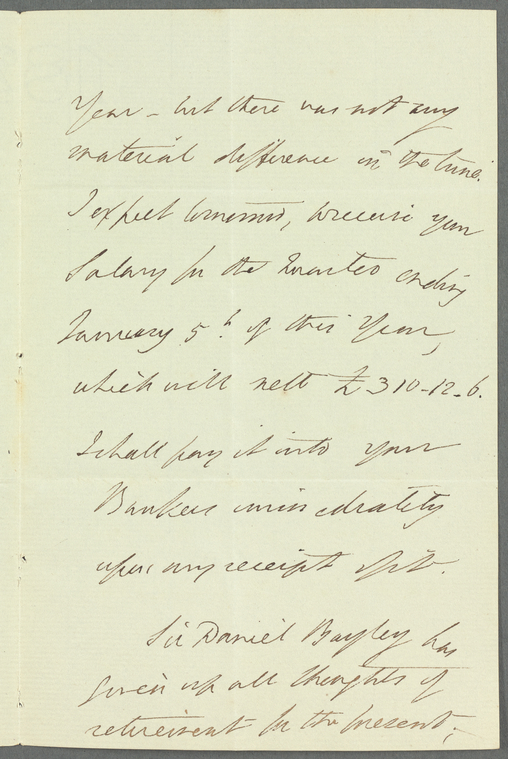 Year – but there was not any
material difference in the time.
I expect tomorrow, to receive your
Salary for the Quarter ending
January 5th of this Year,
which will nett £310-12-6.
I shall pay it into your
Bankers immediately
upon my receipt of it.
Sir Daniel Bayley has
given up all thoughts of
retirement for the present;